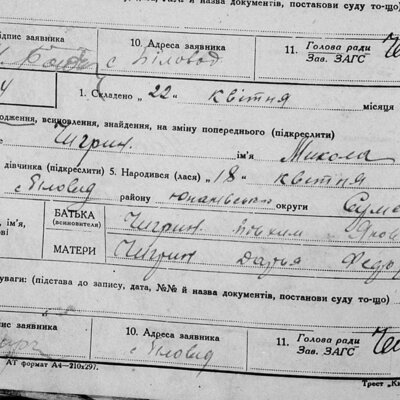 й назва документів, постанови суду то-що)
підпис заявника 10. Адреса заявника 11. Голова ради
Зав. ЗАГС
с Біловод
1. Складено „22“ квітня місяця
родження, всиновлення, знайдення, на зміну попереднього (підкреслити)
Чигрин ім'я Микола
дівчинка (підкреслити) 5. Народився (лася) „18“ квітня
с Біловод району Юнаківськ округи Сумс
ім'я, БАТЬКА
(всиновителя) Чигрин Йоким Яков
МАТЕРИ Чигрин Дарья Федор
уваги: (підстава до запису, дата, №№ й назва документів, постанови суду то-що)
підпис заявника 10. Адреса заявника 11. Голова ради
Зав. ЗАГС
с Біловод
АТ формат А4—210х297. Трест „Ки